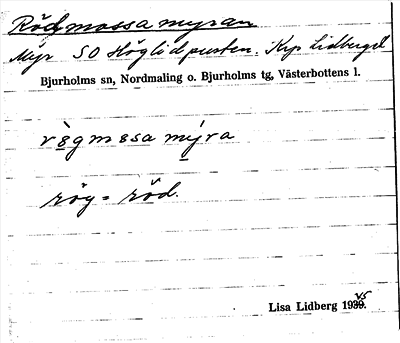 Rödmossamyran
Myr SO Höglidpusten. Krp Lidberget
Bjurholms sn, Nordmaling o. Bjurholms tg, Västerbottens l.
rögmosa mýra
rög = röd.
Lisa Lidberg 1945.